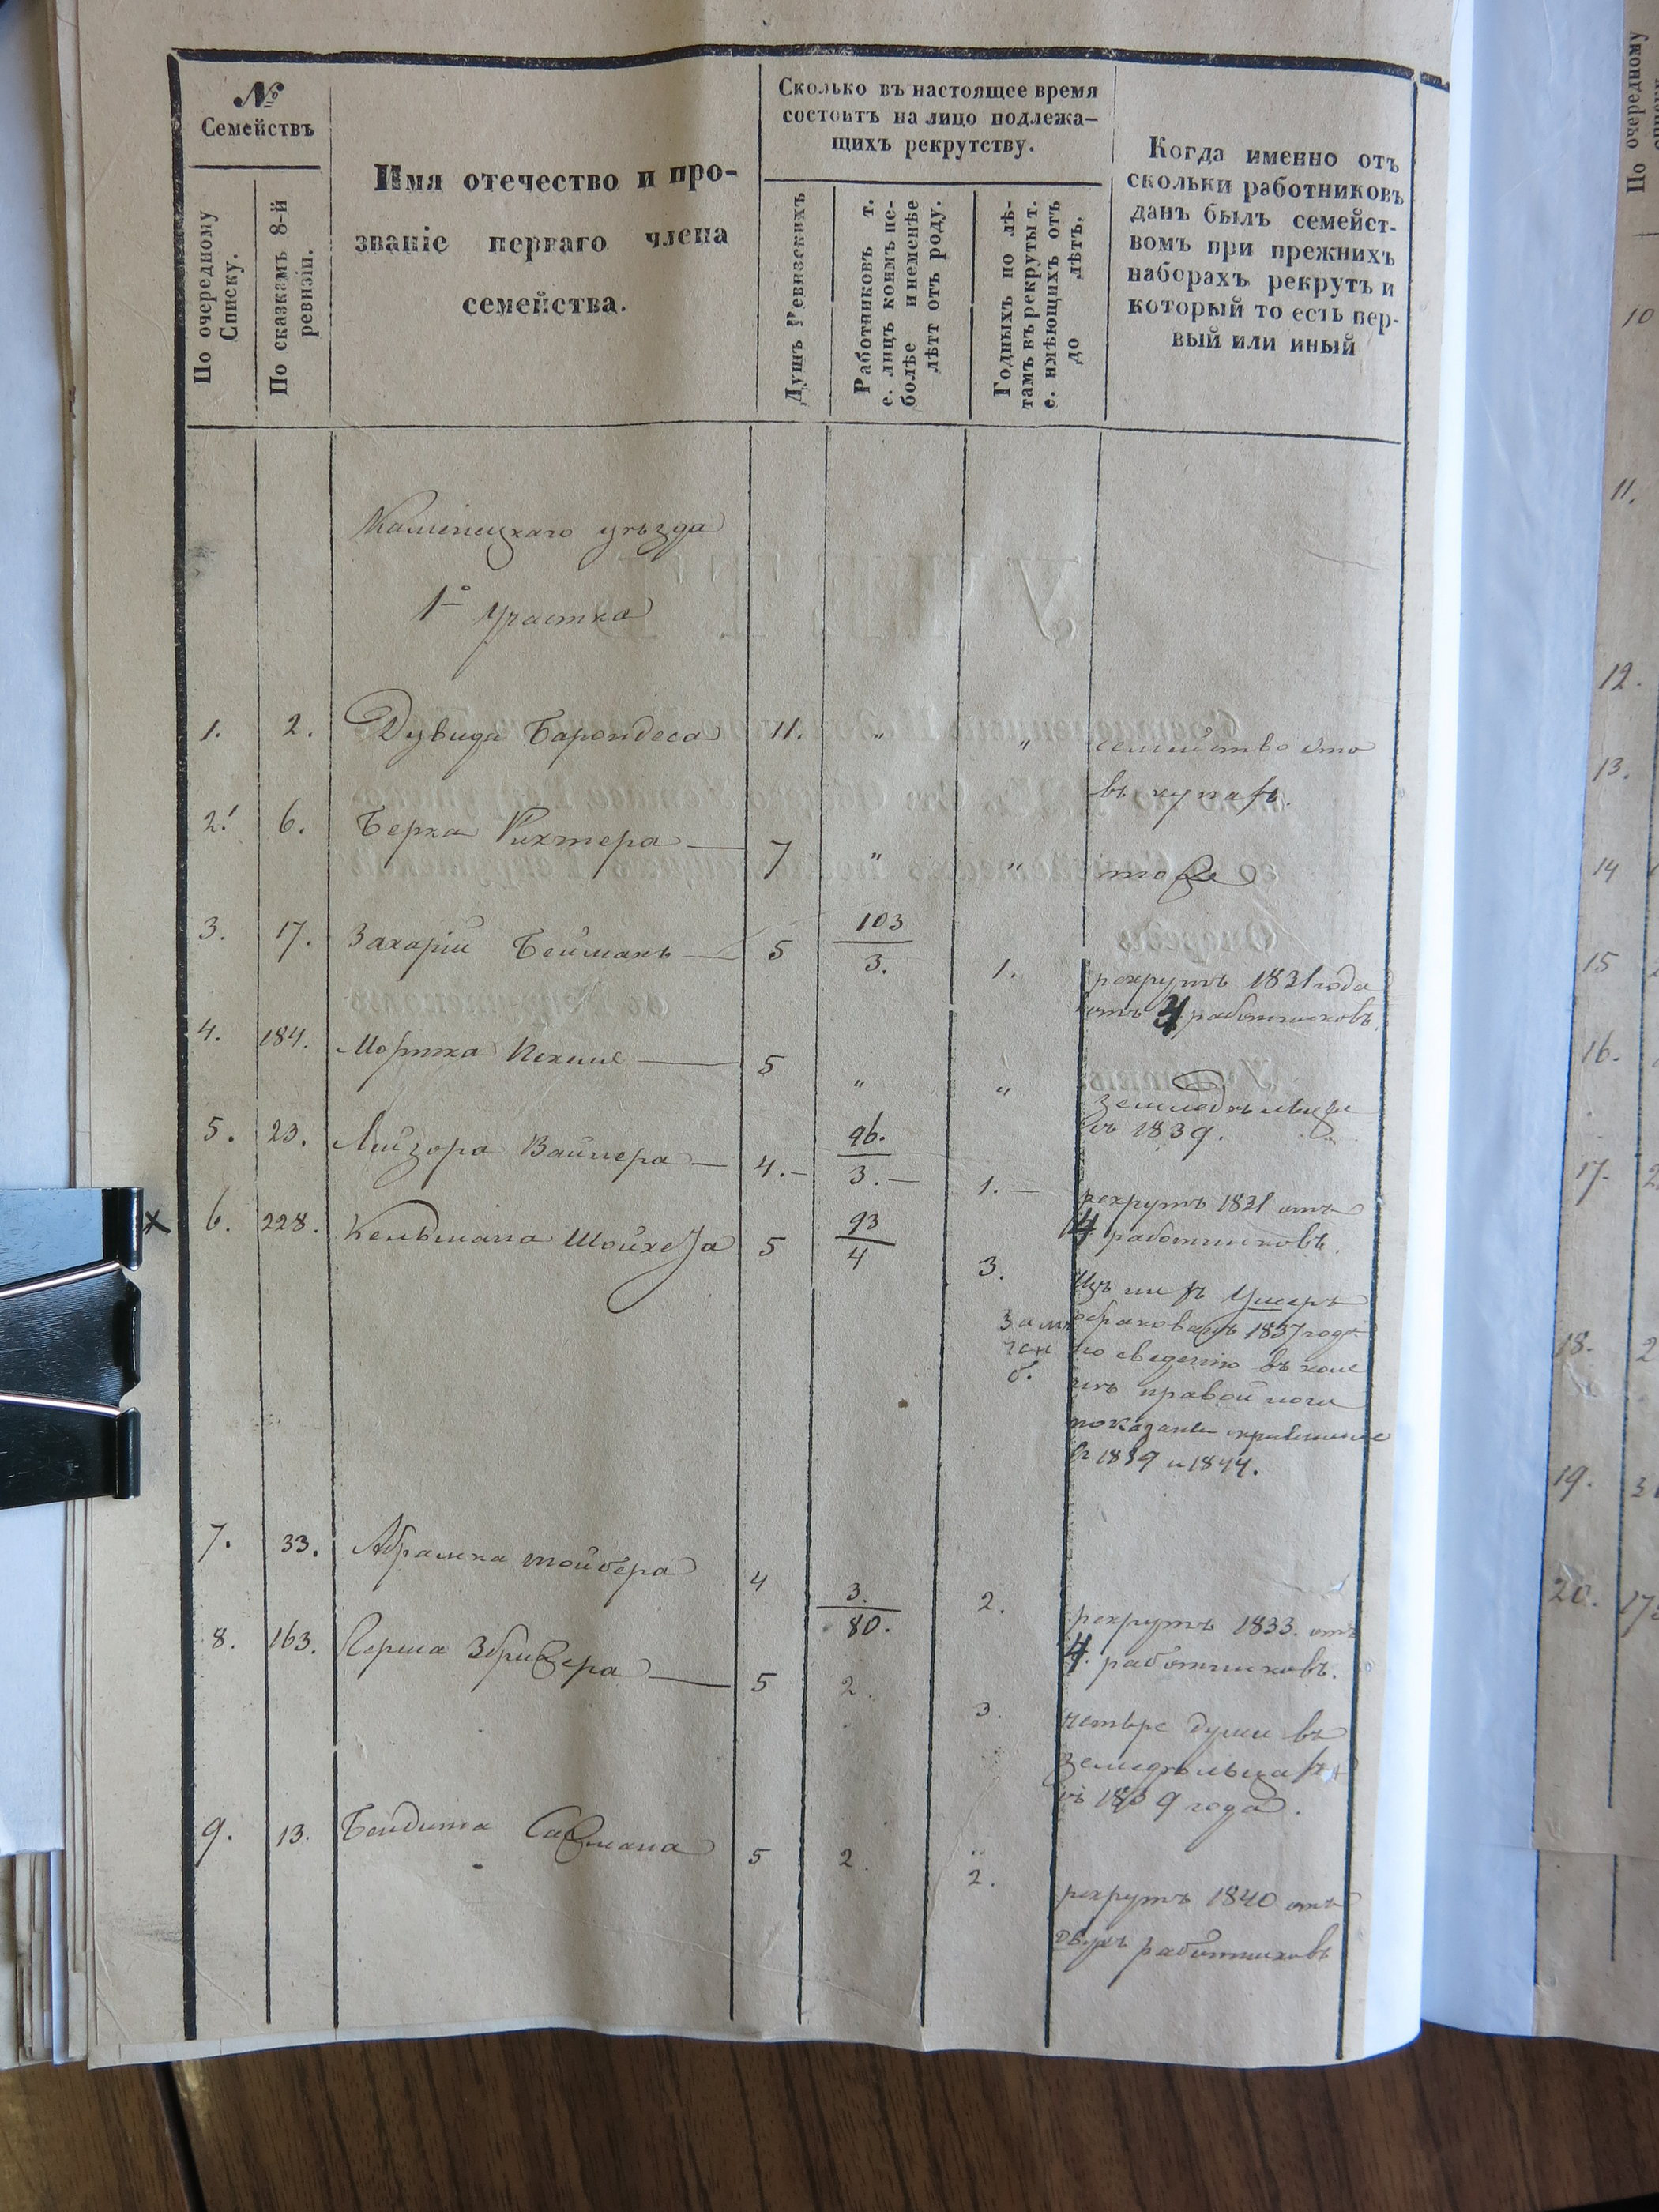 №
Семействъ
По очередному
Списку.
По сказкамъ 8-й
ревизіи.
Имя отечество и про-
званіе перваго члена
семейства.
Сколько въ настоящее время
состоитъ на лицо подлежа-
щихъ рекрутству.
Душъ Ревизскихъ
Работниковъ т.
е. лицъ коимъ не-
болѣе и неменѣе
лѣтт отъ роду.
Годныхъ по лѣ-
тамъ въ рекруты т.
е. имѣющихъ отъ
до лѣтъ.
Когда именно отъ
скольки работниковъ
данъ былъ семейст-
вомъ при прежнихъ
наборахъ рекрутъ и
который то есть пер-
вый или иный
Каменецкаго уѣзда
1º Участка
1. 2. Дувида Барондеса 11. " " семейство это
въ купцахъ.
2. 6. Берка Рихтера — 7 " " тоже
3. 17. Захарій Бейманъ — 5 103
3. 1. рекрутъ 1831 года
отъ 4 работниковъ.
4. 184. 5 " " земледѣльцы
въ 1839.
5. 23. Лейзора Вайнера — 4. — 96.
3. — 1. — рекрутъ 1831 отъ
4 работниковъ.
6. 228. Кельмана Шойхета 5 93
4 3. Умеръ
бракованъ 1837 года
по сведенію въ коле
нѣ правой ноги
показанъ
в 1839 и 1844.
7. 33. Абрамка Тойбера 4 3.
80. 2. рекрутъ 1833. отъ
4. работниковъ.
8. 163. Герша Збрижера — 5 2. 3. четыре души въ
земледѣльцахъ
съ 1839 года.
9. 13. Бендита Сасмана 5 2. 2. рекрутъ 1840 отъ
двухъ работниковъ
По очередному
10
11.
12.
13.
14
15
16.
17.
18.
19.
20.